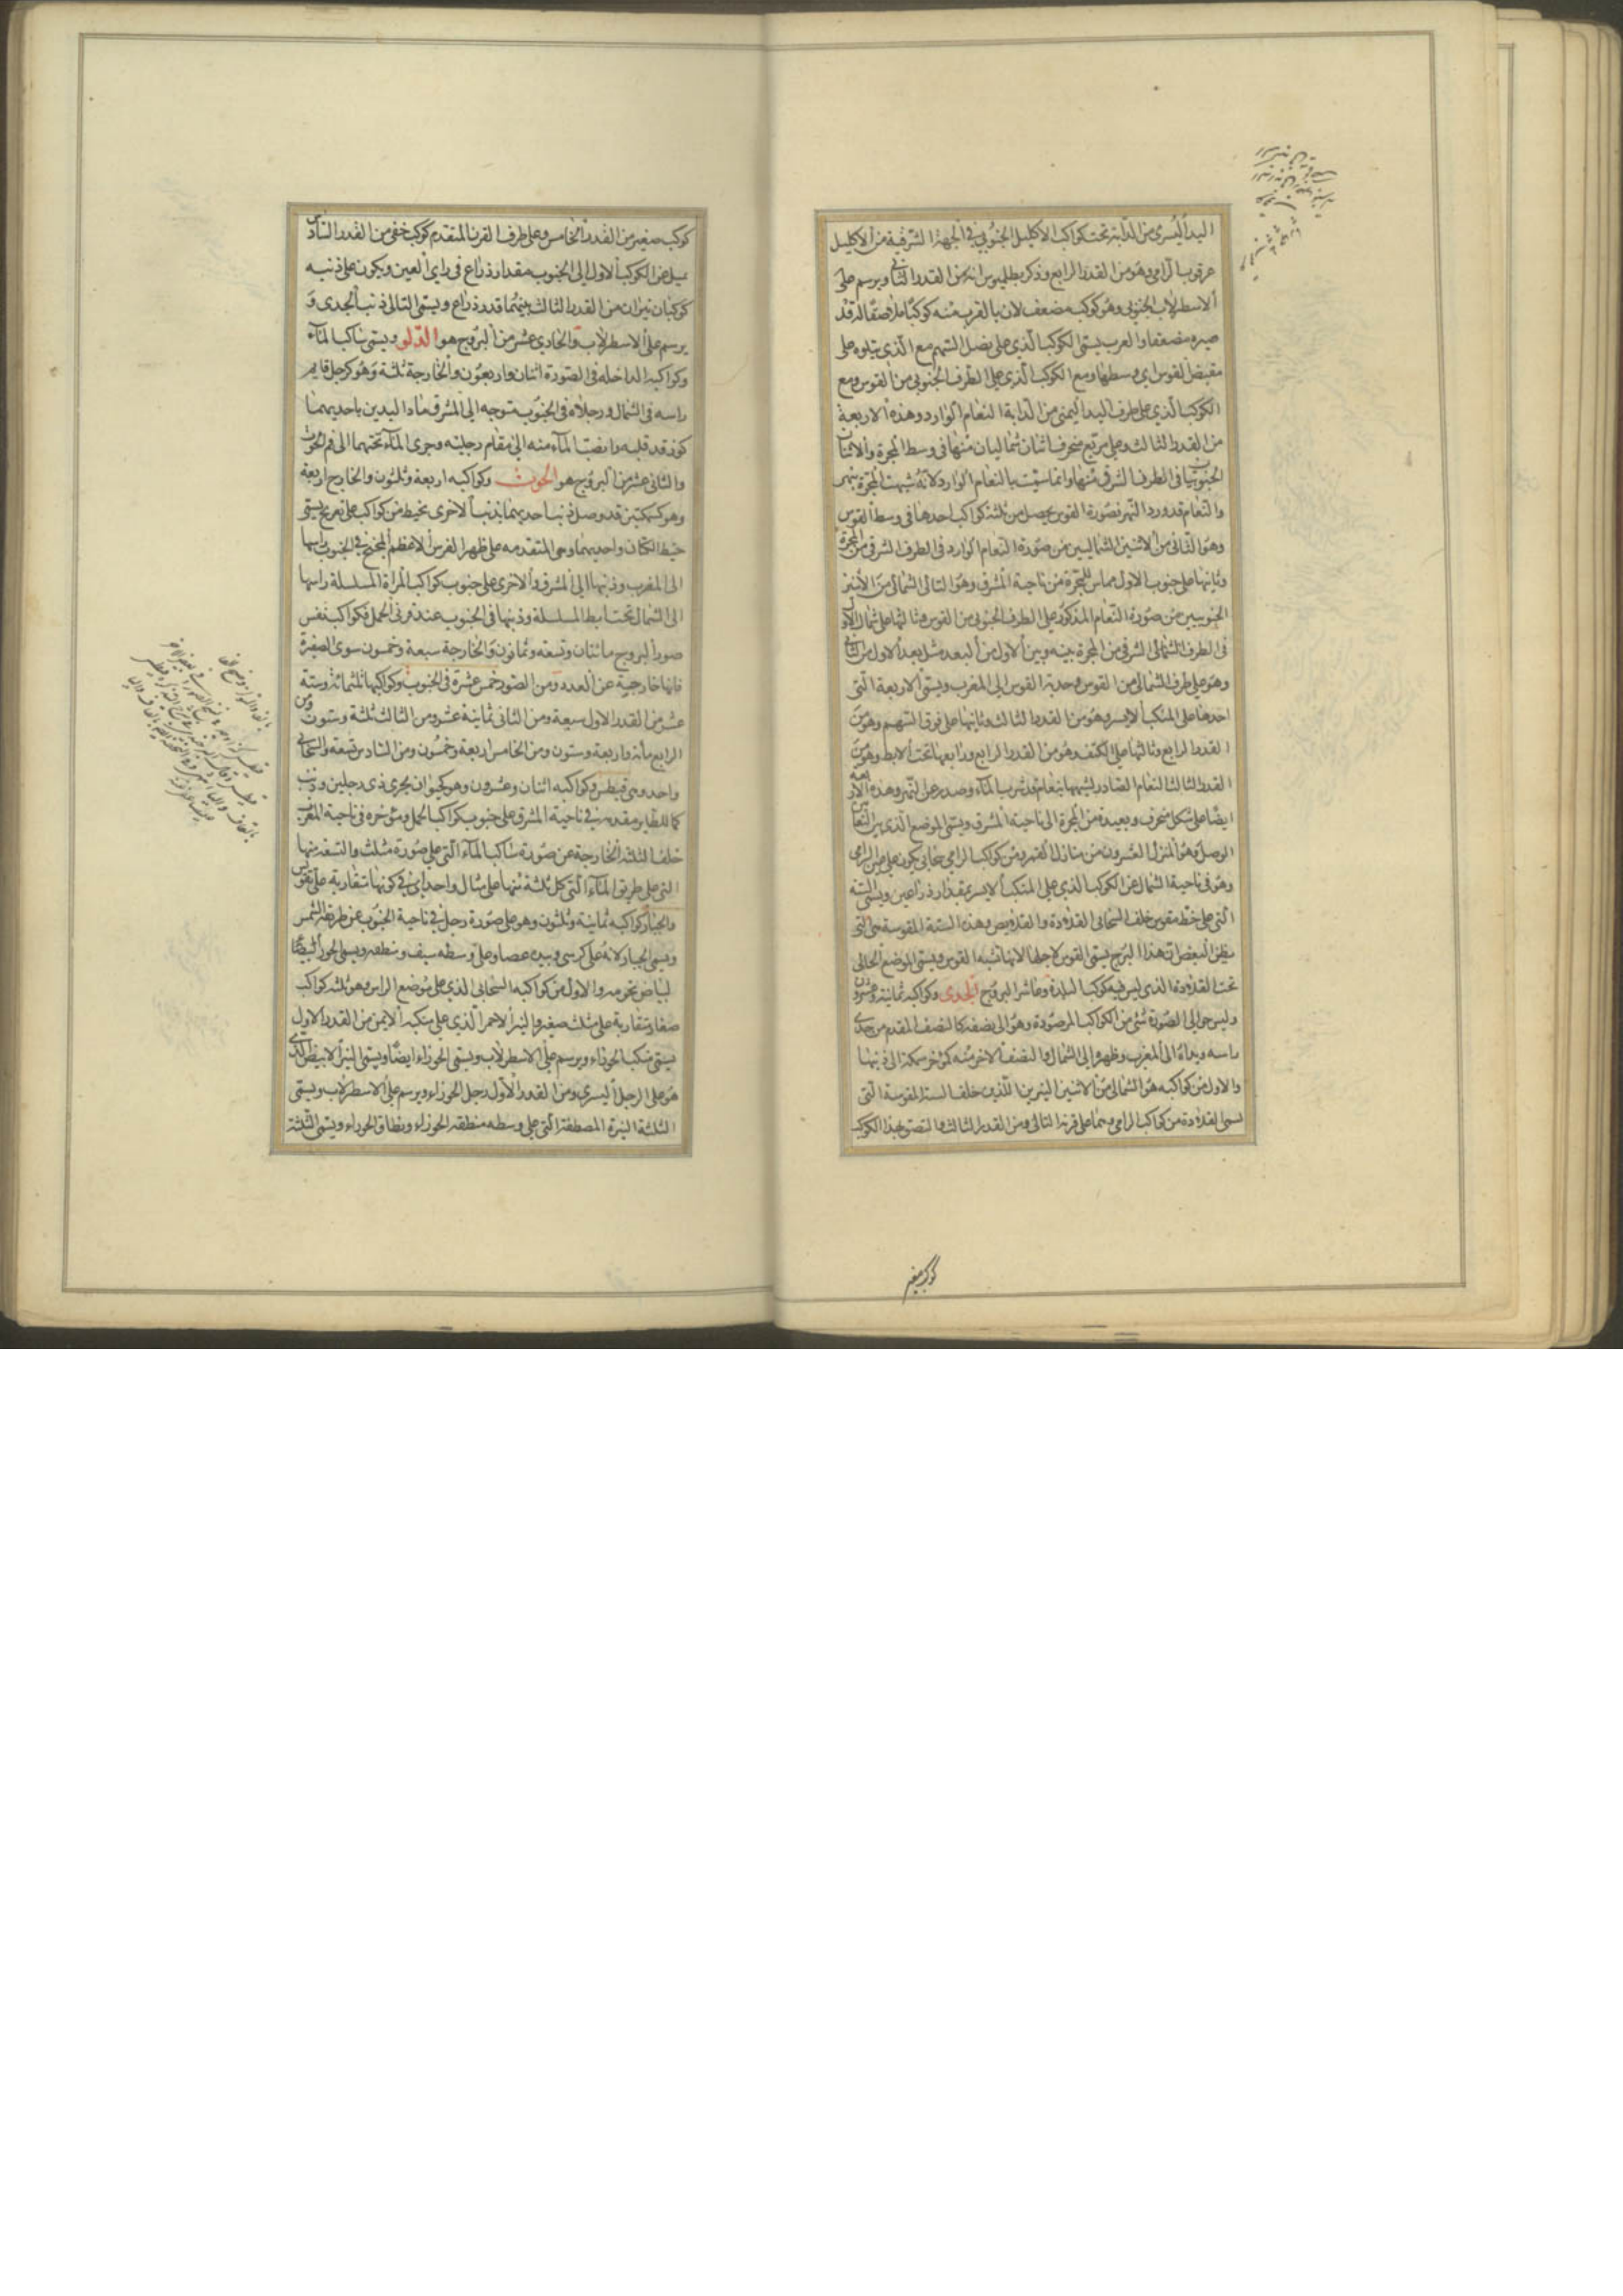 اليد اليسرى من الدابة تحت كواكب الاكليل الجنوبي في الجهة الشرقية من الاكليل
عرقوب الرامي وهو من القدر الرابع وذكر بطلميوس انه من القدر الثاني ويرسم على
الاسطرلاب الجنوبي وهو كوكب مضعف لان بالقرب منه كوكبا ملاصقا له قد
صيره مضعفا والعرب يسمى الكوكب الذي على نصل السهم مع الذي يتلوه على
مقبض القوس اي وسطها ومع الكوكب الذي على الطرف الجنوبي من القوس ومع
الكوكب الذي على طرف اليد اليمنى من الدابة النعام الوارد وهذه الاربعة
من القدر الثالث وعلى مربع منحرف اثنان شماليان منها في وسط المجرة والاثنان
الجنوبيان في الطرف الشرقي منها وانما سميت بالنعام الوارد لانه شبهت المجرة بنهر
والنعام قد ورد النهر فصورة القوس يحصل من ثلثة كواكب احدها في وسط القوس
وهو الثاني من الاثنين الشماليين من صورة النعام الوارد في الطرف الشرقي من المجرة
وثانيها على جنوب الاول مماس للمجرة من ناحية المشرق وهو التالي الشمالي من الاثنين
الجنوبيين من صورة النعام المذكور على الطرف الجنوبي من القوس وثالثها على شمال الاول
في الطرف الشمالي الشرقي من المجرة بينه وبين الاول من البعد مثل بعد الاول من الثاني
وهو على طرف الشمالي من القوس وحدبة القوس الى المغرب ويسمى الاربعة التي
احدها على المنكب الايسر وهو من القدر الثالث وثانيها على فوق السهم وهو من
القدر الرابع وثالثها على الكتف وهو من القدر الرابع ورابعها تحت الابط وهو من
القدر الثالث النعام الصادر لشبهها بنعام قد شرب الماء وصدر عن النهر وهذه الاربعة
ايضا على شكل منحرف وبعيدة من المجرة الى ناحية المشرق ويسمى الموضع الذي بين النعامين
الوصل وهو المنزل العشرون من منازل القمر ومن كواكب الرامي سحابي يكون على عين الرامي
وهو في ناحية الشمال عن الكوكب الذي على المنكب الايسر بمقدار ذراعين ويسمى الستة
التي على خط مقوس خلف السحابي القلادة والقلايص وهذه الستة المقوسة هي التي
يظن البعض ان هذا البرج يسمى القوس لاجلها لانها تشبه القوس ويسمى الموضع الخالي
تحت القلادة الذي ليس فيه كوكب البلدة وعاشر البروج الجدي وكواكبه ثمانية وعشرون
وليس حوالي الصورة شئ من الكواكب المرصودة وهو الى نصفه كالنصف المقدم من جدي
راسه ويداه الى المغرب وظهره الى الشمال والنصف الاخر منه كمؤخر سمكة الى ذنبها
والاول من كواكبه هو الشمالي من الاثنين النيرين اللذين خلف الستة المقوسة التي
تسمى القلادة من كواكب الرامي وهما على قرنه التالي ومن القدر الثالث والتصق بهذا الكوكب
كوكب صغير
كوكب صغير من القدر الخامس وعلى طرف القرن المتقدم كوكب خفي من القدر السادس
يميل عن الكوكب الاول الى الجنوب مقدار ذراع في راي العين ويكون على ذنبه
كوكبان نيران من القدر الثالث بينهما قدر ذراع ويسمى التالي ذنب الجدي و
يرسم على الاسطرلاب والحادي عشر من البروج هو الدلو ويسمى ساكب الماء
وكواكبه الداخلة في الصورة اثنان واربعون والخارجة ثلثة وهو كرجل قايم
راسه في الشمال ورجلاه في الجنوب متوجه الى المشرق ماد اليدين باحديهما
كوز قد قلبه وانصب الماء منه الى مقام رجليه وجرى الماء تحتهما الى فم الحوت
والثاني عشر من البروج هو الحوت وكواكبه اربعة وثلثون والخارج اربعة
وهو كسمكتين قد وصل ذنب احديهما بذنب الاخرى بخيط من كواكب على تعريج يسمى
خيط الكتان واحديهما وهي المتقدمة على ظهر الفرس الاعظم المجنح في الجنوب راسها
الى المغرب وذنبها الى المشرق والاخرى على جنوب كواكب المراة المسلسلة راسها
الى الشمال تحت ابط المسلسلة وذنبها في الجنوب عند قرني الحمل فكواكب نفس
صور البروج مائتان وتسعة وثمانون والخارجة سبعة وخمسون سوى الضفيرة
فانها خارجية عن العدد ومن الصور خمس عشرة في الجنوب وكواكبها ثلثمائة وستة
عشر من القدر الاول سبعة ومن الثاني ثمانية عشر ومن الثالث ثلثة وستون ومن
الرابع مائة واربعة وستون ومن الخامس اربعة وخمسون ومن السادس تسعة والسحابي
واحد وهي قيطس وكواكبه اثنان وعشرون وهو كحيوان بحري ذي رجلين وذنب
كما للطاير مقدمه في ناحية المشرق على جنوب كواكب الحمل ومؤخره في ناحية المغرب
خلف الثلثة الخارجة عن صورة ساكب الماء التي على صورة مثلث والتسعة منها
التي على طريق الماء التي كل ثلثة منها على مثال واحد اي في كونها متقاربة على تقويس
والجبار كواكبه ثمانية وثلثون وهو على صورة رجل في ناحية الجنوب عن طريقة الشمس
ويسمى الجبار لانه على كرسي وبيده عصا وعلى وسطه سيف ومنطقة ويسمى الجوزا ايضا
لبياض نجومه والاول من كواكبه السحابي الذي على موضع الراس وهو ثلثة كواكب
صغار متقاربة على مثلث صغير والنير الاحمر الذي على منكبه الايمن من القدر الاول
يسمى منكب الجوزاء ويرسم على الاسطرلاب ويسمى الجوزاء ايضا ويسمى النير الابيض الذي
هو على الرجل اليسرى ومن القدر الاول رجل الجوزاء ويرسم على الاسطرلاب ويسمى
الثلثة النيرة المصطفة التي على وسطه منطقة الجوزاء ونطاق الجوزاء ويسمى الثلثة